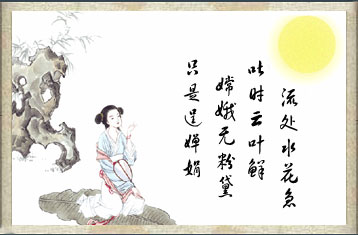 流处水花急
吐时云叶鲜
嫦娥无粉黛
只是逞婵娟